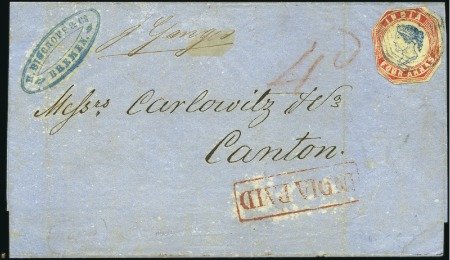 BREMEN.
p Ganges
4d
INDIA
FOUR ANNAS
Messrs Carlowitz & Co
Canton.
INDIA PAID